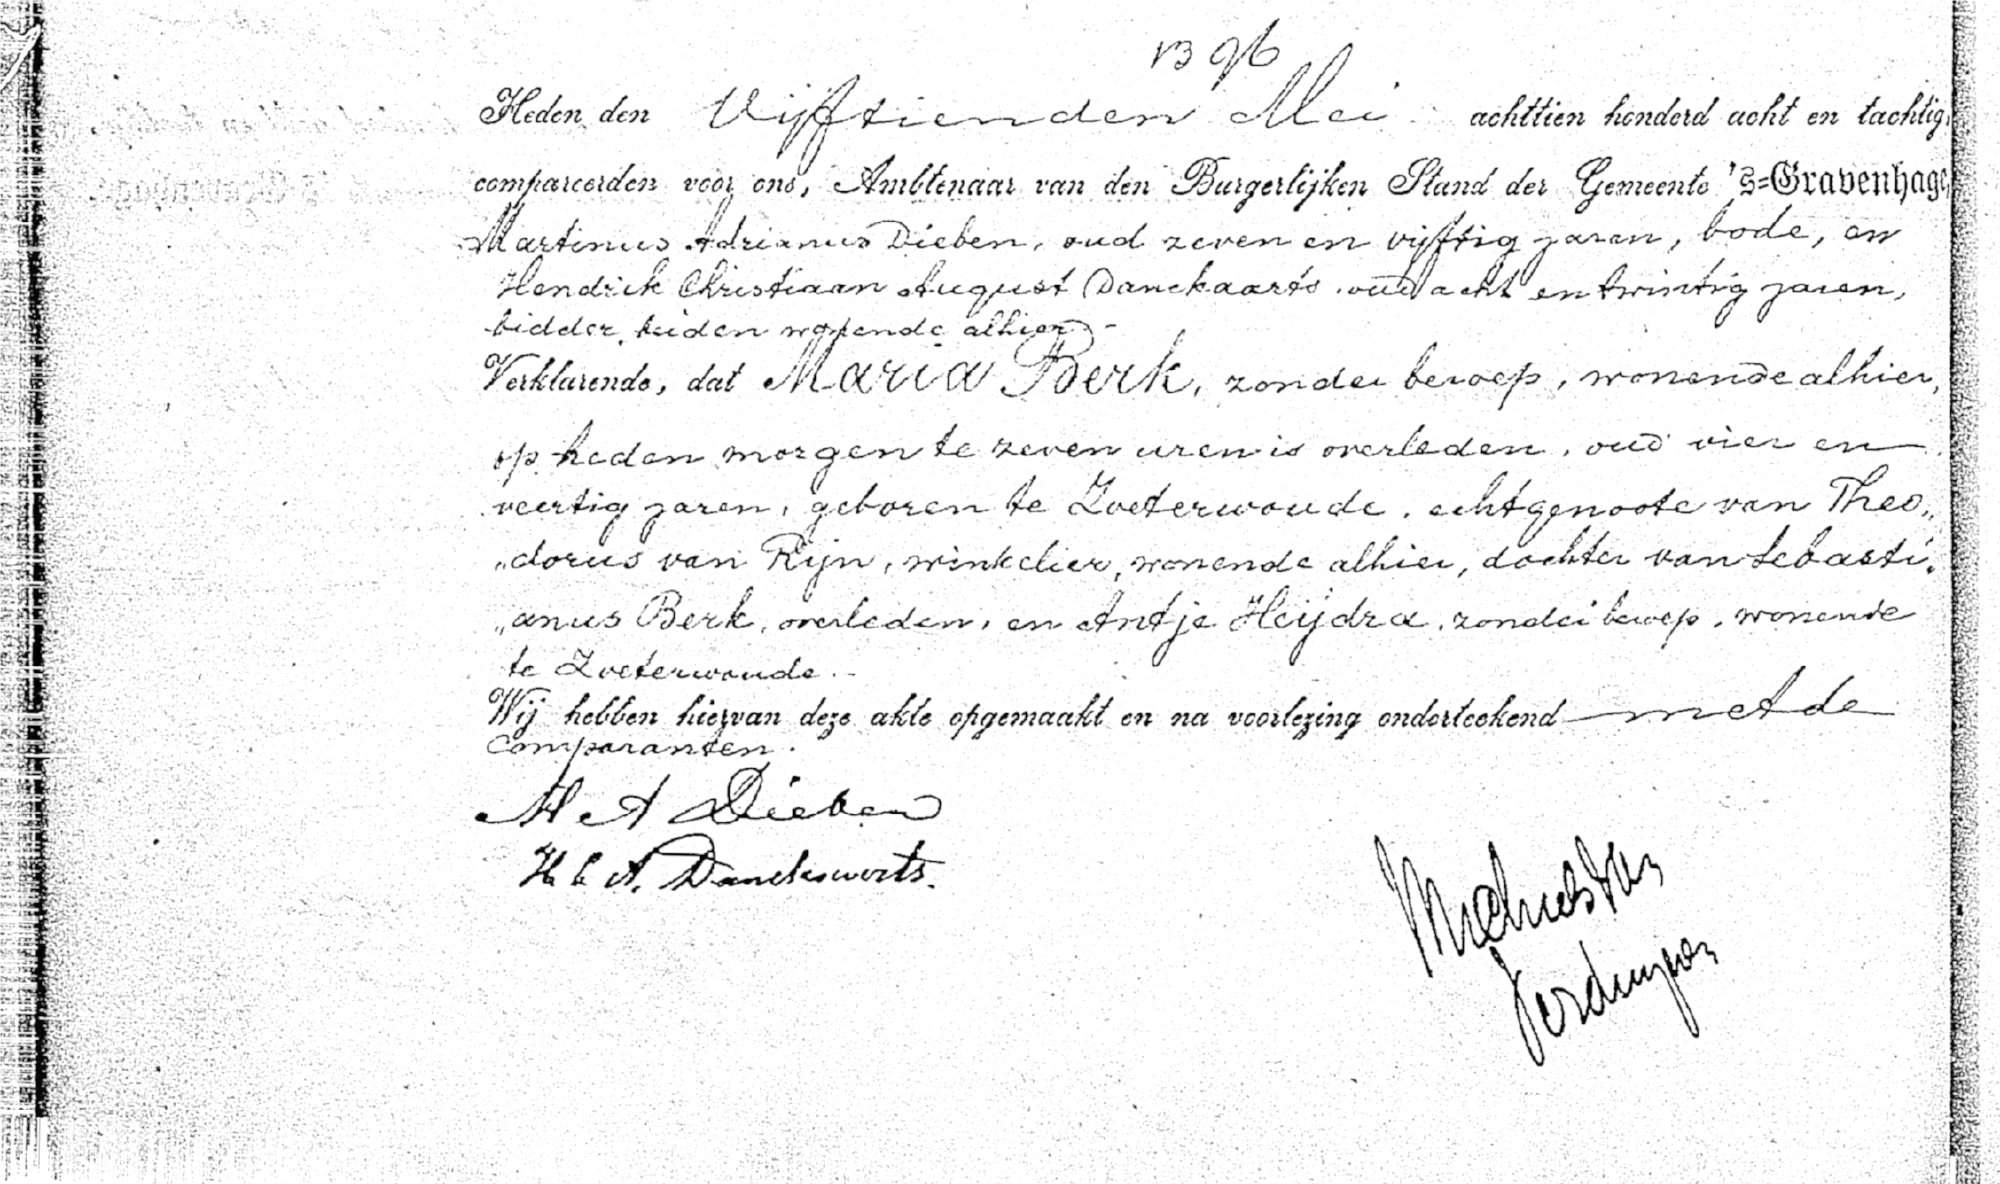 1396
Heden den Vijftienden Mei achttien honderd acht en tachtig,
compareerden voor ons, Ambtenaar van den Burgerlijken Stand der Gemeente 's-Gravenhage,
Martinus Adrianus Dieben, oud zeven en vijftig jaren, bode, en
Hendrik Christiaan August Danckaarts, oud acht en twintig jaren,
bidder, beiden wonende alhier.-
Verklarende, dat Maria Berk, zonder beroep, wonende alhier,
op heden morgen te zeven uren is overleden, oud vier en
veertig jaren, geboren te Zoeterwoude, echtgenoote van Theo„
„dorus van Rijn, winkelier, wonende alhier, dochter van Sebasti„
„anus Berk, overleden, en Antje Heijdra, zonder beroep, wonende
te Zoeterwoude.-
Wij hebben hiervan deze akte opgemaakt en na voorlezing onderteekend met de
Comparanten.
M A Dieben
H C A. Danckaarts.
Michiels van